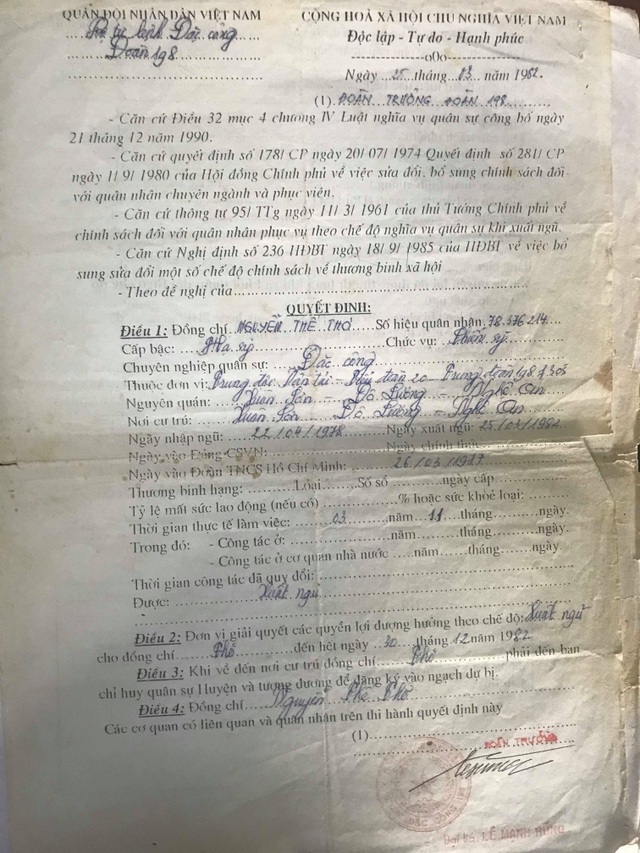 QUÂN ĐỘI NHÂN DÂN VIỆT NAM
Bộ tư lệnh Đặc công
Đoàn 198
CỘNG HOÀ XÃ HỘI CHỦ NGHĨA VIỆT NAM
Độc lập - Tự do - Hạnh phúc
---------o0o---------
Ngày 25 tháng 03 năm 1982
(1) ĐOÀN TRƯỞNG ĐOÀN 198
- Căn cứ Điều 32 mục 4 chương IV Luật nghĩa vụ quân sự công bố ngày
21 tháng 12 năm 1990.
- Căn cứ quyết định số 178/ CP ngày 20/ 07/ 1974 Quyết định số 281/ CP
ngày 1/ 9/ 1980 của Hội đồng Chính phủ về việc sửa đổi, bổ sung chính sách đối
với quân nhân chuyên ngành và phục viên.
- Căn cứ thông tư 95/ TTg ngày 11/ 3/ 1961 của thủ Tướng Chính phủ về
chính sách đối với quân nhân phục vụ theo chế độ nghĩa vụ quân sự khi xuất ngũ.
- Căn cứ Nghị định số 236 HĐBT ngày 18/ 9/ 1985 của HĐBT về việc bổ
sung sửa đổi một số chế độ chính sách về thương binh xã hội
- Theo đề nghị của
QUYẾT ĐỊNH:
Điều 1: Đồng chí NGUYỄN THẾ THƠ Số hiệu quân nhân 78.576.214
Cấp bậc: Hạ sỹ Chức vụ: Chiến sỹ
Chuyên nghiệp quân sự: Đặc công
Thuộc đơn vị: Trung đội Vận tải - Tiểu đoàn 20 - Trung đoàn 198 f 305
Nguyên quán: Xuân Sơn - Đô Lương - Nghệ An
Nơi cư trú: Xuân Sơn - Đô Lương - Nghệ An
Ngày nhập ngũ: 22/04/1978 Ngày xuất ngũ: 25/03/1982
Ngày vào Đảng CSVN: Ngày chính thức:
Ngày vào Đoàn TNCS Hồ Chí Minh: 26/03/1977
Thương binh hạng: Loại Số sổ ngày cấp
Tỷ lệ mất sức lao động (nếu có) % hoặc sức khoẻ loại:
Thời gian thực tế làm việc: 03 năm 11 tháng ngày.
Trong đó: - Công tác ở: năm tháng ngày.
- Công tác ở cơ quan nhà nước năm tháng ngày.
Thời gian công tác đã quy đổi:
Được: Xuất ngũ
Điều 2: Đơn vị giải quyết các quyền lợi được hưởng theo chế độ: Xuất ngũ
cho đồng chí Thơ đến hết ngày 30 tháng 12 năm 1982
Điều 3: Khi về đến nơi cư trú đồng chí Thơ phải đến ban
chỉ huy quân sự Huyện và tương đương để đăng ký vào ngạch dự bị.
Điều 4: Đồng chí Nguyễn Thế Thơ
Các cơ quan có liên quan và quân nhân trên thi hành quyết định này
(1)
ĐOÀN TRƯỞNG
Đại tá. LÊ MẠNH HÙNG